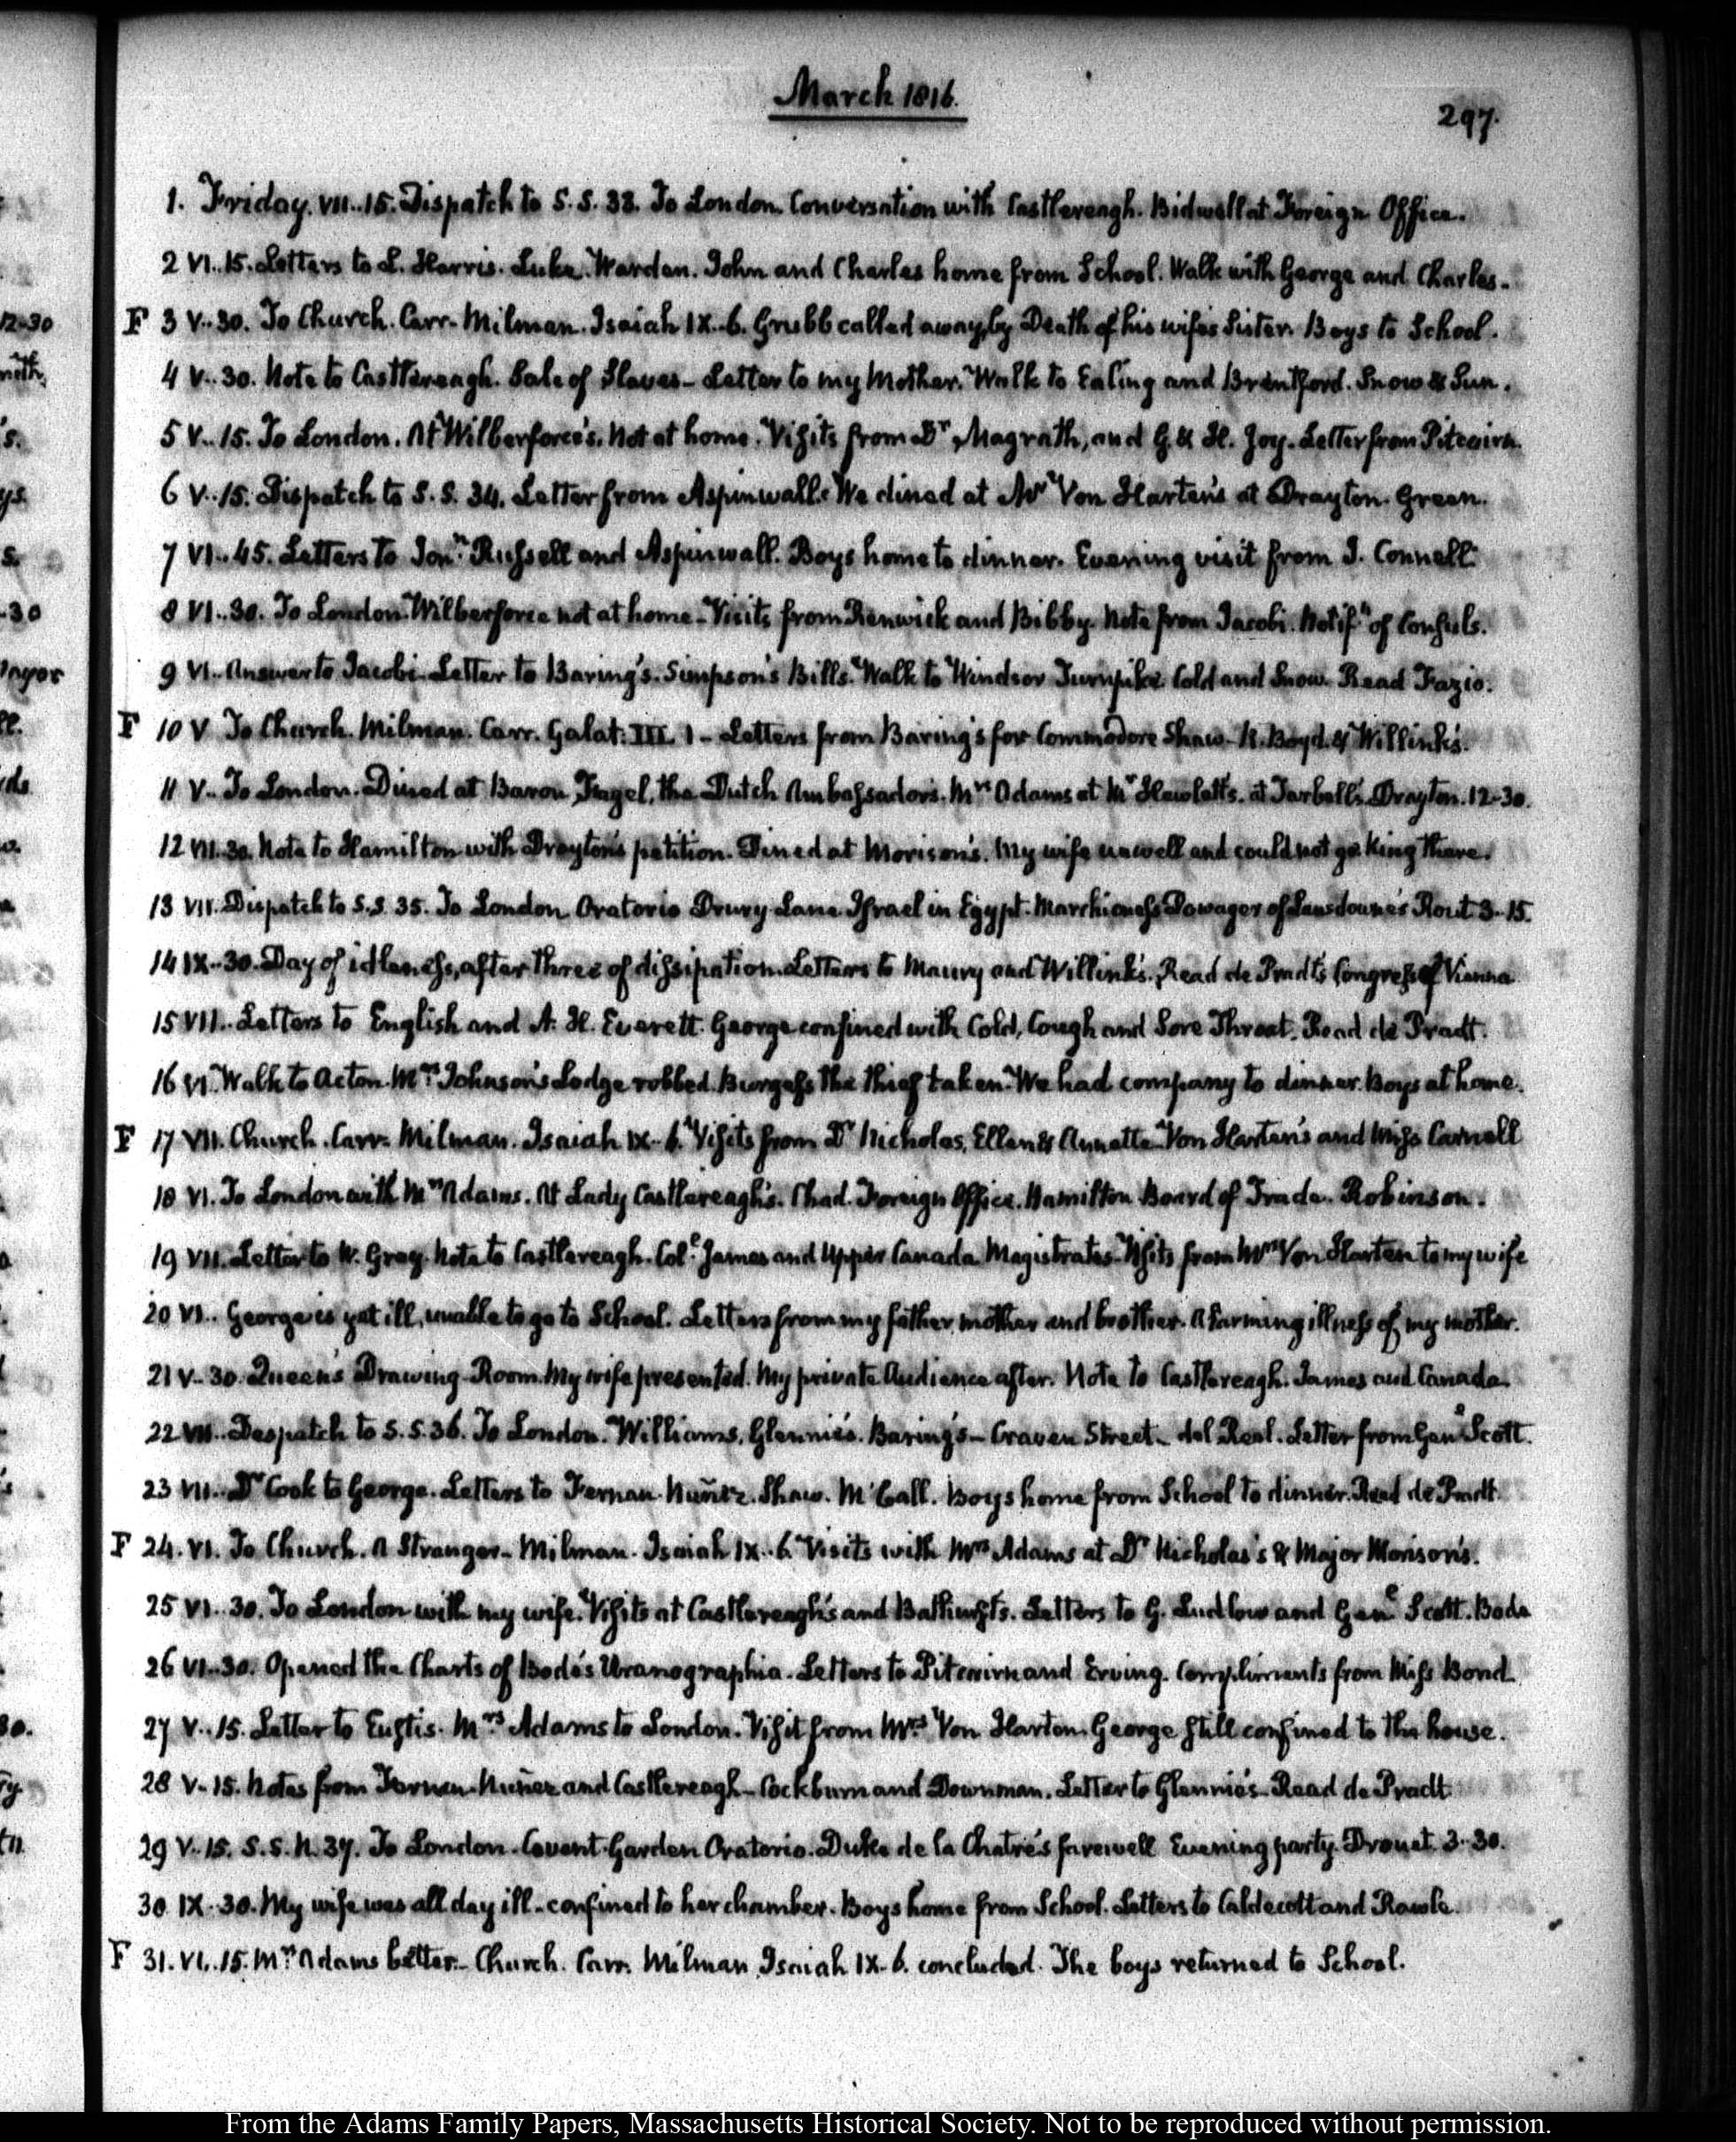 March 1816.
297.
1. Friday. VII..15. Dispatch to S.S. 33. To London. Conversation with Castlereagh. Bidwell at Foreign Office.
2 VI..15. Letters to L. Harris. Luke. Warden. John and Charles home from School. Walk with George and Charles.
12-30 F 3 V..30. To Church. Carr. Milman. Isaiah IX..6. Grubb called away, by Death of his wife's Sister. Boys to School.
4 V..30. Note to Castlereagh. Sale of Slaves – Letter to my Mother. Walk to Ealing and Brentford. Snow & Sun.
5 V..15. To London. At Wilberforce's. Not at home. Visits from Dr. Magrath, and G. & H. Joy. Letter from Pitcairn.
6 V..15. Dispatch to S.S. 34. Letter from Aspinwall. We dined at Mr Von Harten's at Drayton-Green.
7 VI..45. Letters to Jonn. Russell and Aspinwall. Boys home to dinner. Evening visit from J. Connell
8 VI..30. To London. Wilberforce not at home – Visits from Renwick and Bibby. Note from Jacobi. Notifn of Consuls.
9 VI.. Answer to Jacobi. Letter to Baring's. Simpson's Bills. Walk to Windsor Turnpike. Cold and Snow. Read Fazio.
F 10 V To Church. Milman. Carr. Galat: III. 1 – Letters from Baring's for Commodore Shaw – R. Boyd. & Willink's.
11 V.. To London. Dined at Baron Fagel, the Dutch Ambassador's. Mrs Adams at Mr Hewlett's. at Tarbell's Drayton. 12-30.
12 VII.30. Note to Hamilton with Drayton's petition. Dined at Morison's. My wife unwell and could not go. King there.
13 VII. Dispatch to S.S. 35. To London Oratorio Drury-Lane Israel in Egypt. Marchioness Dowager of Lansdowne's Rout 3..15.
14 IX..30. Day of idleness, after three of dissipation. Letters to Maury and Willink's. Read de Pradt's Congress of Vienna
15 VII.. Letters to English and A. H. Everett. George confined with Cold, Cough and Sore Throat. Read de Pradt.
16 VI. Walk to Acton. Mrs Johnson's Lodge robbed. Burgess the thief taken. We had company to dinner. Boys at home.
F 17 VII. Church. Carr. Milman. Isaiah IX..6. Visits from Dr Nicholas, Ellen & Annette Von Harten's and Miss Carnell
18 VI. To London with Mrs Adams. At Lady Castlereagh's. Chad. Foreign Office. Hamilton Board of Trade. Robinson.
19 VII. Letter to W. Gray. Note to Castlereagh. Coll James and Upper Canada Magistrates. Visits from Mrs Von Harten to my wife
20 VI.. George is yet ill, unable to go to School. Letters from my father, mother and brother. Alarming illness of my mother.
21 V..30. Queen's Drawing-Room. My wife presented. My private Audience after. Note to Castlereagh. James and Canada.
22 VII. Despatch to S.S. 36. To London. Williams. Glennie's. Baring's – Craven Street – del Real. Letter from Genl Scott.
23 VII.. Dr Cook to George. Letters to Fernan-Nuñez. Shaw. McCall. Boys home from School to dinner. Read de Pradt.
F 24. VI. To Church. A Stranger – Milman. Isaiah IX..6. Visits with Mrs Adams at Dr Nicholas's & Major Morison's.
25 VI..30. To London with my wife. Visits at Castlereagh's and Bathurst's. Letters to G. Ludlow and Genl Scott. Bode
26 VI..30. Opened the Charts of Bode's Uranographia. Letters to Pitcairn and Erving. Compliments from Miss Bond.
27 V..15. Letter to Eustis. Mrs Adams to London. Visit from Mrs Von Harten. George still confined to the house.
28 V..15. Notes from Fernan-Nuñez and Castlereagh – Cockburn and Downman. Letter to Glennie's. Read de Pradt
29 V..15. S.S. N. 37. To London. Covent-Garden Oratorio. Duke de la Chatre's farewell Evening party. Drouet. 3..30.
30 IX..30. My wife was all day ill – confined to her chamber. Boys home from School. Letters to Caldecott and Rawle.
F 31. VI..15. Mrs Adams better – Church. Carr. Milman Isaiah IX..6. concluded. The boys returned to School.
From the Adams Family Papers, Massachusetts Historical Society. Not to be reproduced without permission.